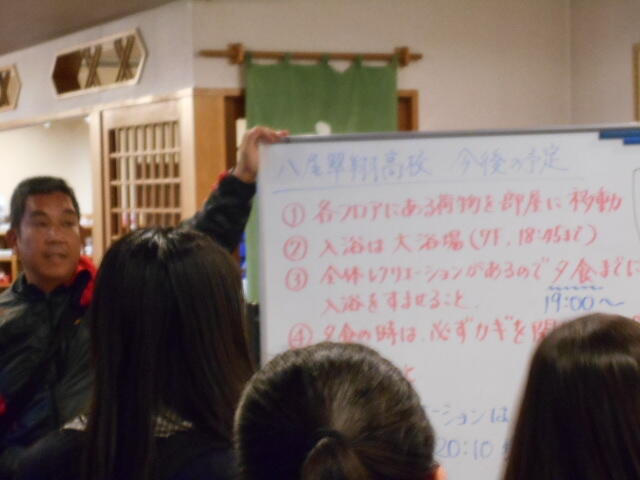 八尾翠翔高校 今後の予定
① 各フロアにある荷物を部屋に移動
② 入浴は大浴場(7F, 18:45まで)
③ 全体レクリエーションがあるので夕食までに
入浴をすませること. 19:00〜
④ 夕食の時は、必ずカギを
と
ーションは
20:10